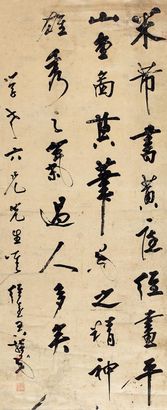 米芾書黃庭經畫平
山堂圖其筆之精神
雄秀之氣過人多矣
六兄先生